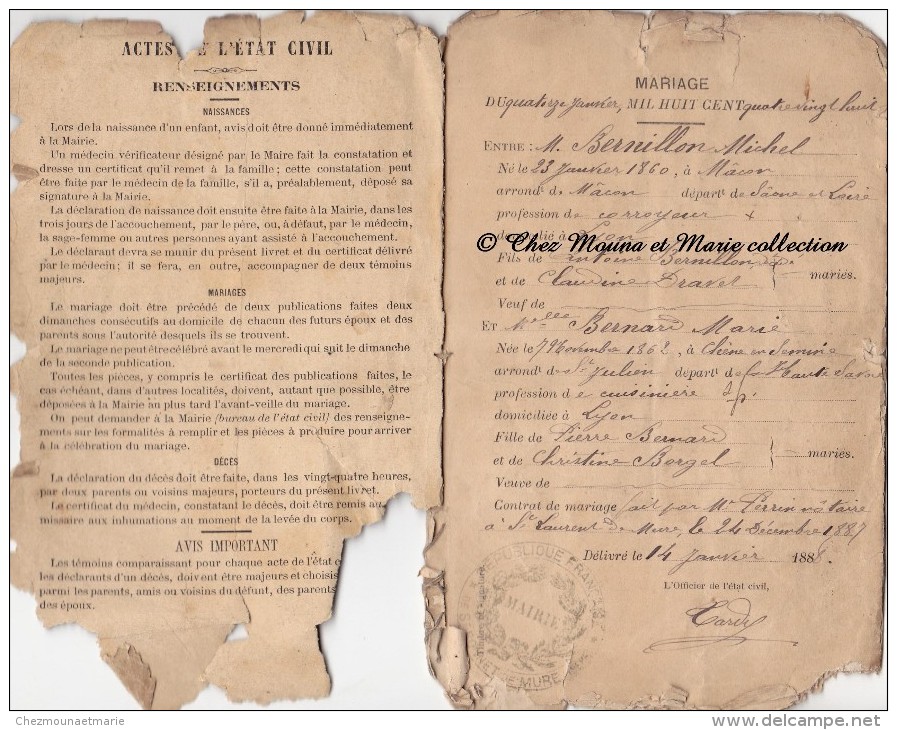 ACTES DE L'ÉTAT CIVIL
RENSEIGNEMENTS
NAISSANCES
Lors de la naissance d'un enfant, avis doit être donné immédiatement
à la Mairie.
Un médecin vérificateur désigné par le Maire fait la constatation et
dresse un certificat qu'il remet à la famille ; cette constatation peut
être faite par le médecin de la famille, s'il a, préalablement, déposé sa
signature à la Mairie.
La déclaration de naissance doit ensuite être faite à la Mairie, dans les
trois jours de l'accouchement, par le père, ou, à défaut, par le médecin,
la sage-femme ou autres personnes ayant assisté à l'accouchement.
Le déclarant devra se munir du présent livret et du certificat délivré
par le médecin ; il se fera, en outre, accompagner de deux témoins
majeurs.
MARIAGES
Le mariage doit être précédé de deux publications faites deux
dimanches consécutifs au domicile de chacun des futurs époux et des
parents sous l'autorité desquels ils se trouvent.
Le mariage ne peut être célébré avant le mercredi qui suit le dimanche
de la seconde publication.
Toutes les pièces, y compris le certificat des publications faites, le
cas échéant, dans d'autres localités, doivent, autant que possible, être
déposées à la Mairie au plus tard l'avant-veille du mariage.
On peut demander à la Mairie (bureau de l'état civil) des renseigne-
ments sur les formalités à remplir et les pièces à produire pour arriver
à la célébration du mariage.
DÉCÈS
La déclaration du décès doit être faite, dans les vingt-quatre heures,
par deux parents ou voisins majeurs, porteurs du présent livret.
Le certificat du médecin, constatant le décès, doit être remis au
missaire aux inhumations au moment de la levée du corps.
AVIS IMPORTANT
Les témoins comparaissant pour chaque acte de l'état c
les déclarants d'un décès, doivent être majeurs et choisis
parmi les parents, amis ou voisins du défunt, des parents
des époux.
MARIAGE
DU quatorze Janvier, MIL HUIT CENT quatre vingt huit
ENTRE : M. Bernillon Michel
Né le 23 Janvier 1860, à Mâcon
arrond<sup>t</sup> de Mâcon départ<sup>t</sup> de Saône et Loire
profession de corroyeur +
domicilié à Lyon
© Chez Mouna et Marie collection
Fils de Antoine Bernillon
et de Claudine Dravet } mariés.
Veuf de
ET M<sup>elle</sup> Bernard Marie
Née le 7 Novembre 1862, à Chêne en Semine
arrond<sup>t</sup> de St Julien départ<sup>t</sup> de la Haute Savoie
profession de cuisinière
domiciliée à Lyon
Fille de Pierre Bernard
et de Christine Borgel } mariés.
Veuve de
Contrat de mariage fait par Me Perrin notaire
à St Laurent de Mure, le 24 Décembre 1887
Délivré le 14 Janvier 1888.
L'Officier de l'état civil,
RÉPUBLIQUE FRANÇAISE
MAIRIE
DE MURE
Chezmounaetmarie
www.delcampe.net